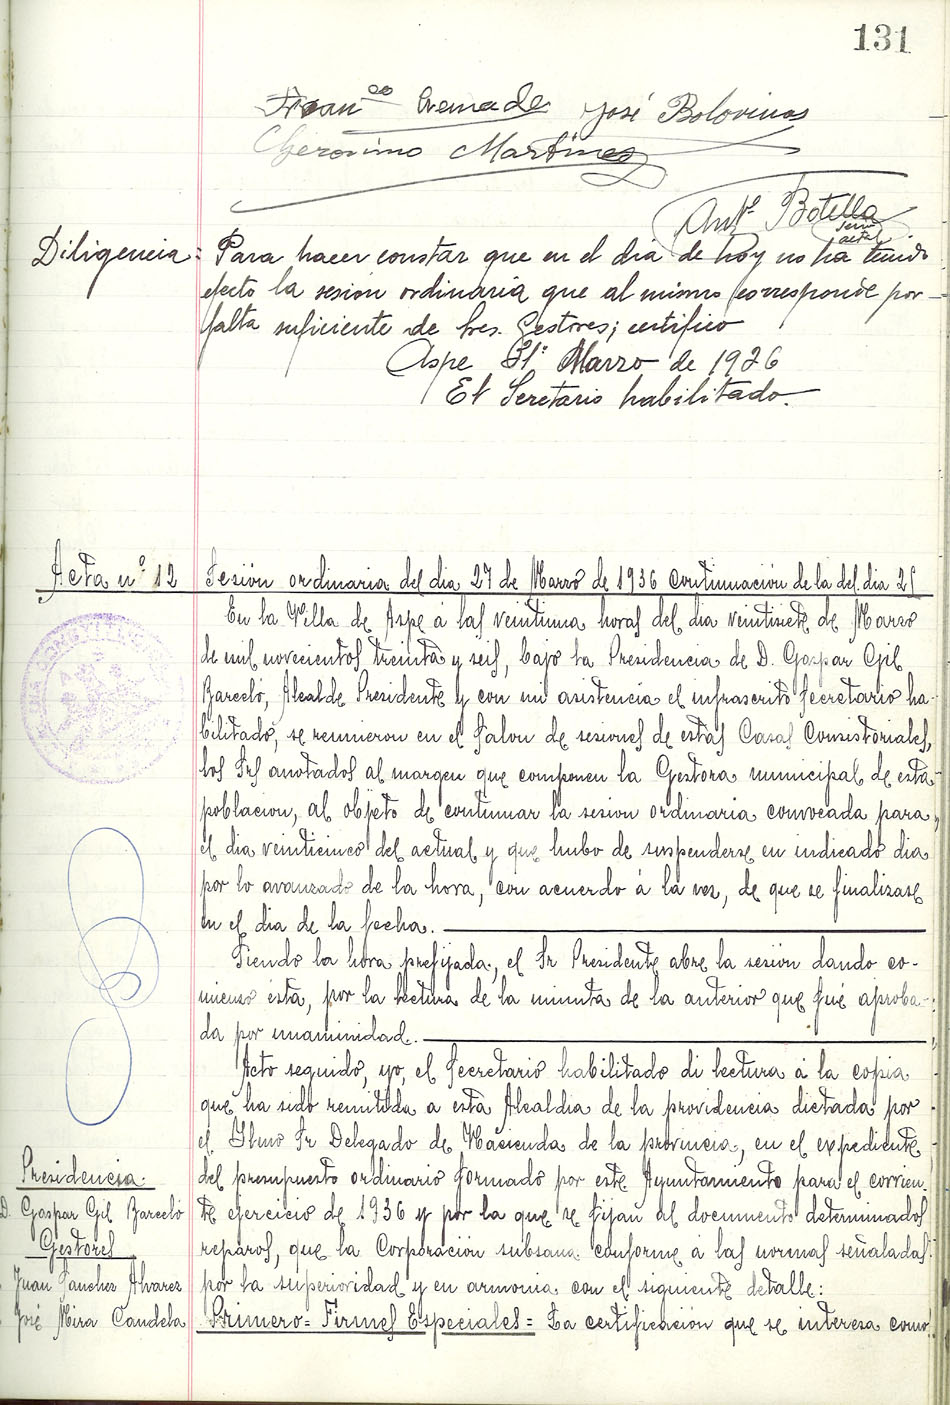 131
Franco Cremades José Bolovinos
Gerónimo Martinez
Antº Botella
Diligencia = Para hacer constar que en el dia de hoy no ha tenido
efecto la sesión ordinaria que al mismo corresponde por
falta suficiente de Sres. Gestores; certifico
Aspe Marzo de 1936
El Secretario habilitado.
Acta nº 12 Sesión ordinaria del dia 27 de Marzo de 1936 continuación de la del dia 25
En la Villa de Aspe á las veintiuna horas del dia veintisiete de Marzo
de mil novecientos treinta y seis, bajo la Presidencia de D. Gaspar Gil
Barceló, Alcalde Presidente y con mi asistencia el infrascrito Secretario ha-
bilitado, se reunieron en el Salon de sesiones de estas Casas Consistoriales,
los Srs anotados al margen que componen la Gestora municipal de esta
poblacion, al objeto de continuar la sesion ordinaria convocada para
el dia veinticinco del actual y que hubo de suspenderse en indicado dia
por lo avanzado de la hora, con acuerdo á la vez, de que se finalizase
en el dia de la fecha.
Siendo la hora prefijada, el Sr Presidente abre la sesión dando co-
mienzo ésta, por la lectura de la minuta de la anterior que fué aproba-
da por unaminidad.
Acto seguido, yo, el Secretario habilitado di lectura á la copia
que ha sido remitida a esta Alcaldia de la providencia dictada por
el Iltmo Sr Delegado de Hacienda de la provincia, en el expediente
del presupuesto ordinario formado por este Ayuntamiento para el corrien-
te ejercicio de 1936 y por la que se fijan al documento determinados
reparos, que la Corporación subsana conforme á las normas señaladas
por la superioridad y en armonia con el siguiente detalle:
Primero = Firmes Especiales = La certificación que se interesa como
Presidencia
D. Gaspar Gil Barceló
Gestores
Juan Sanchez Alvarez
José Mira Candela